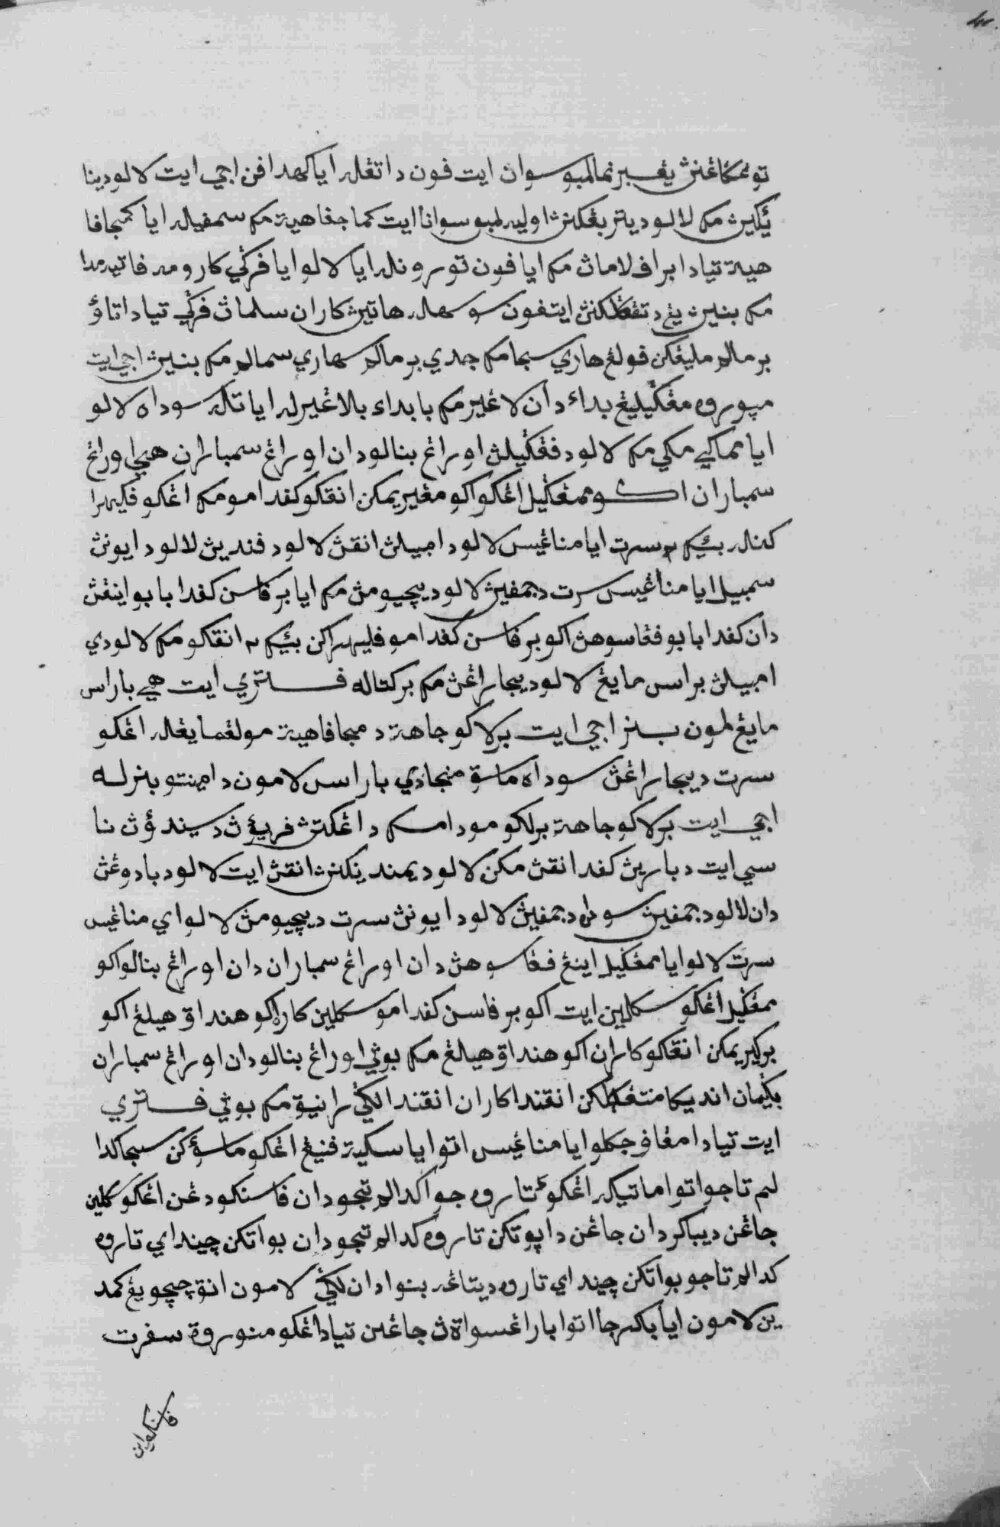 توڠݢاڠنڽ يڠ برنما لمبو سوان ايت فون داتڠله اي كهدافن اجي ايت لالو دينا
يكين مك لالو ديتربڠكنڽ اوليه لمبو سوانا ايت كماج ڤاهيت مك سمفيله اي كمجافا
هيت تياد براف لامان مك اي فون تورونله اي لالو اي فركي كارومه فاتيه مدا
مك بنين يڠ دتڠݢلكنڽ ايتفون سوسهله هاتين كاران سلمان فركي تياد اتاؤ
برمالم مليڠكن فولڠ هاري سجا مك جمدي برمالم سهاري سمالم مك بنين اجي ايت
مڽوروه مڠݢيليڠ بداء دان لاڠير مك بابداء بالاڠيرله اي تله سوداه لالو
اي مماكي مكي مك لالو دفڠݢيلن اورڠ بنالو دان اورڠ سمباران هي اورڠ
سمباران اكو ممڠݢيل اڠكو اكو مڠيريمكن انقكو كفدامو مك اڠكو فليهرا
كنله بئيك٢ سرت اي مناڠيس لالو دامبيلن انقن لالو دفندين لالو دايونڽ
سمبيل اي مناڠيس سرت دجمفين لالو ديچيومن مك اي برفاسن كفدا بابو اينڠن
دان كفدا بابو فڠاسوهن اكو برفاسن كفدامو فليهراكن بئيك٢ انقكو مك لالو دي
امبيلن براس مايڠ لالو ديجاراڠن مك بركتاله فوتري ايت هي باراس
مايڠ لمون بنر اجي ايت برلاكو جاهة دمجافاهيت مولڠمايڠله اڠكو
سرت ديجاراڠن سوداه ماسق منجادي باراس لامون دامنتو بنرله
اجي ايت برلاكو جاهة برلكو مودا مك داڠكتن فريوق دسيندوقن نا
سي ايت دبارين كفدا انقن مكن لالو ديمنديكنن انقن ايت لالو دبادوڠن
دان لالو دجمفين سوله دجمفين لالو دايونن سرت ديچيومن لالو اي مناڠيس
سرت لالو اي ممڠݢيل اينڠ فڠاسوهن دان اورڠ سمباران دان اورڠ بنالو اكو
ممڠݢيل اڠكو سكلين ايت اكو برفاسن كفدامو سكلين كارن اكو هندق هيلڠ اكو
بركيريمكن انقكو كاران اكو هندق هيلڠ مك بوڽي اورڠ بنالو دان اورڠ سمباران
بݢيمان انديكا منڠݢلكن انقندا كاران انقندا لاݢي رانيق مك بوڽي فوتري
ايت تيادا مڠاف جكلو اي مناڠيس اتوا اي ساكيت فنيڠ اڠكو ماسوقكن سجا كدا
لم تاجو اتوا ماتيكه اڠكو تاروه جوا كدالم تجو دان فاسنكو دڠن اڠكو سكلين
جاڠن ديباكر دان جاڠن دافوتكن تاروه كدالم تجو دان بواتكن چنداي تاروه
كدالم تاجو بواتكن چنداي تاروه ديتاڠه بنوا دان لاݢي لامون انق چوچو يڠ كمد
ين لامون اي بكرجا اتوا باراڠسواتن جاڠن تيادا اڠكو منوروة سفرت
فاسنكو اين